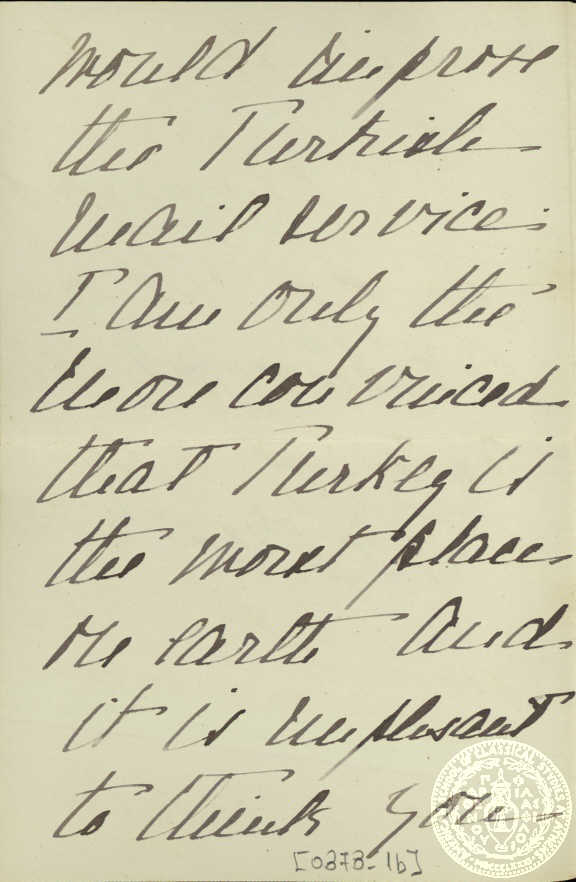 would improve
the Turkish
mail service.
I am only the
more convinced
that Turkey is
the worst place
on earth and
it is unplesant
to think you -
[0373-1b]